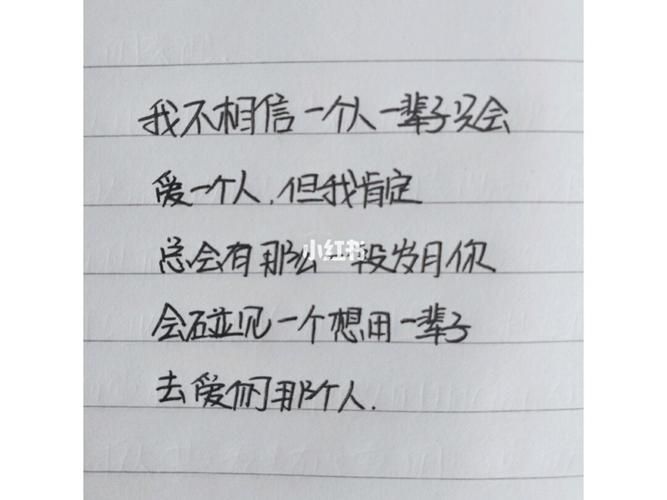 我不相信一个人一辈子只会
爱一个人,但我肯定
总会有那么一段岁月你
会碰见一个想用一辈子
去爱的那个人.
小红书